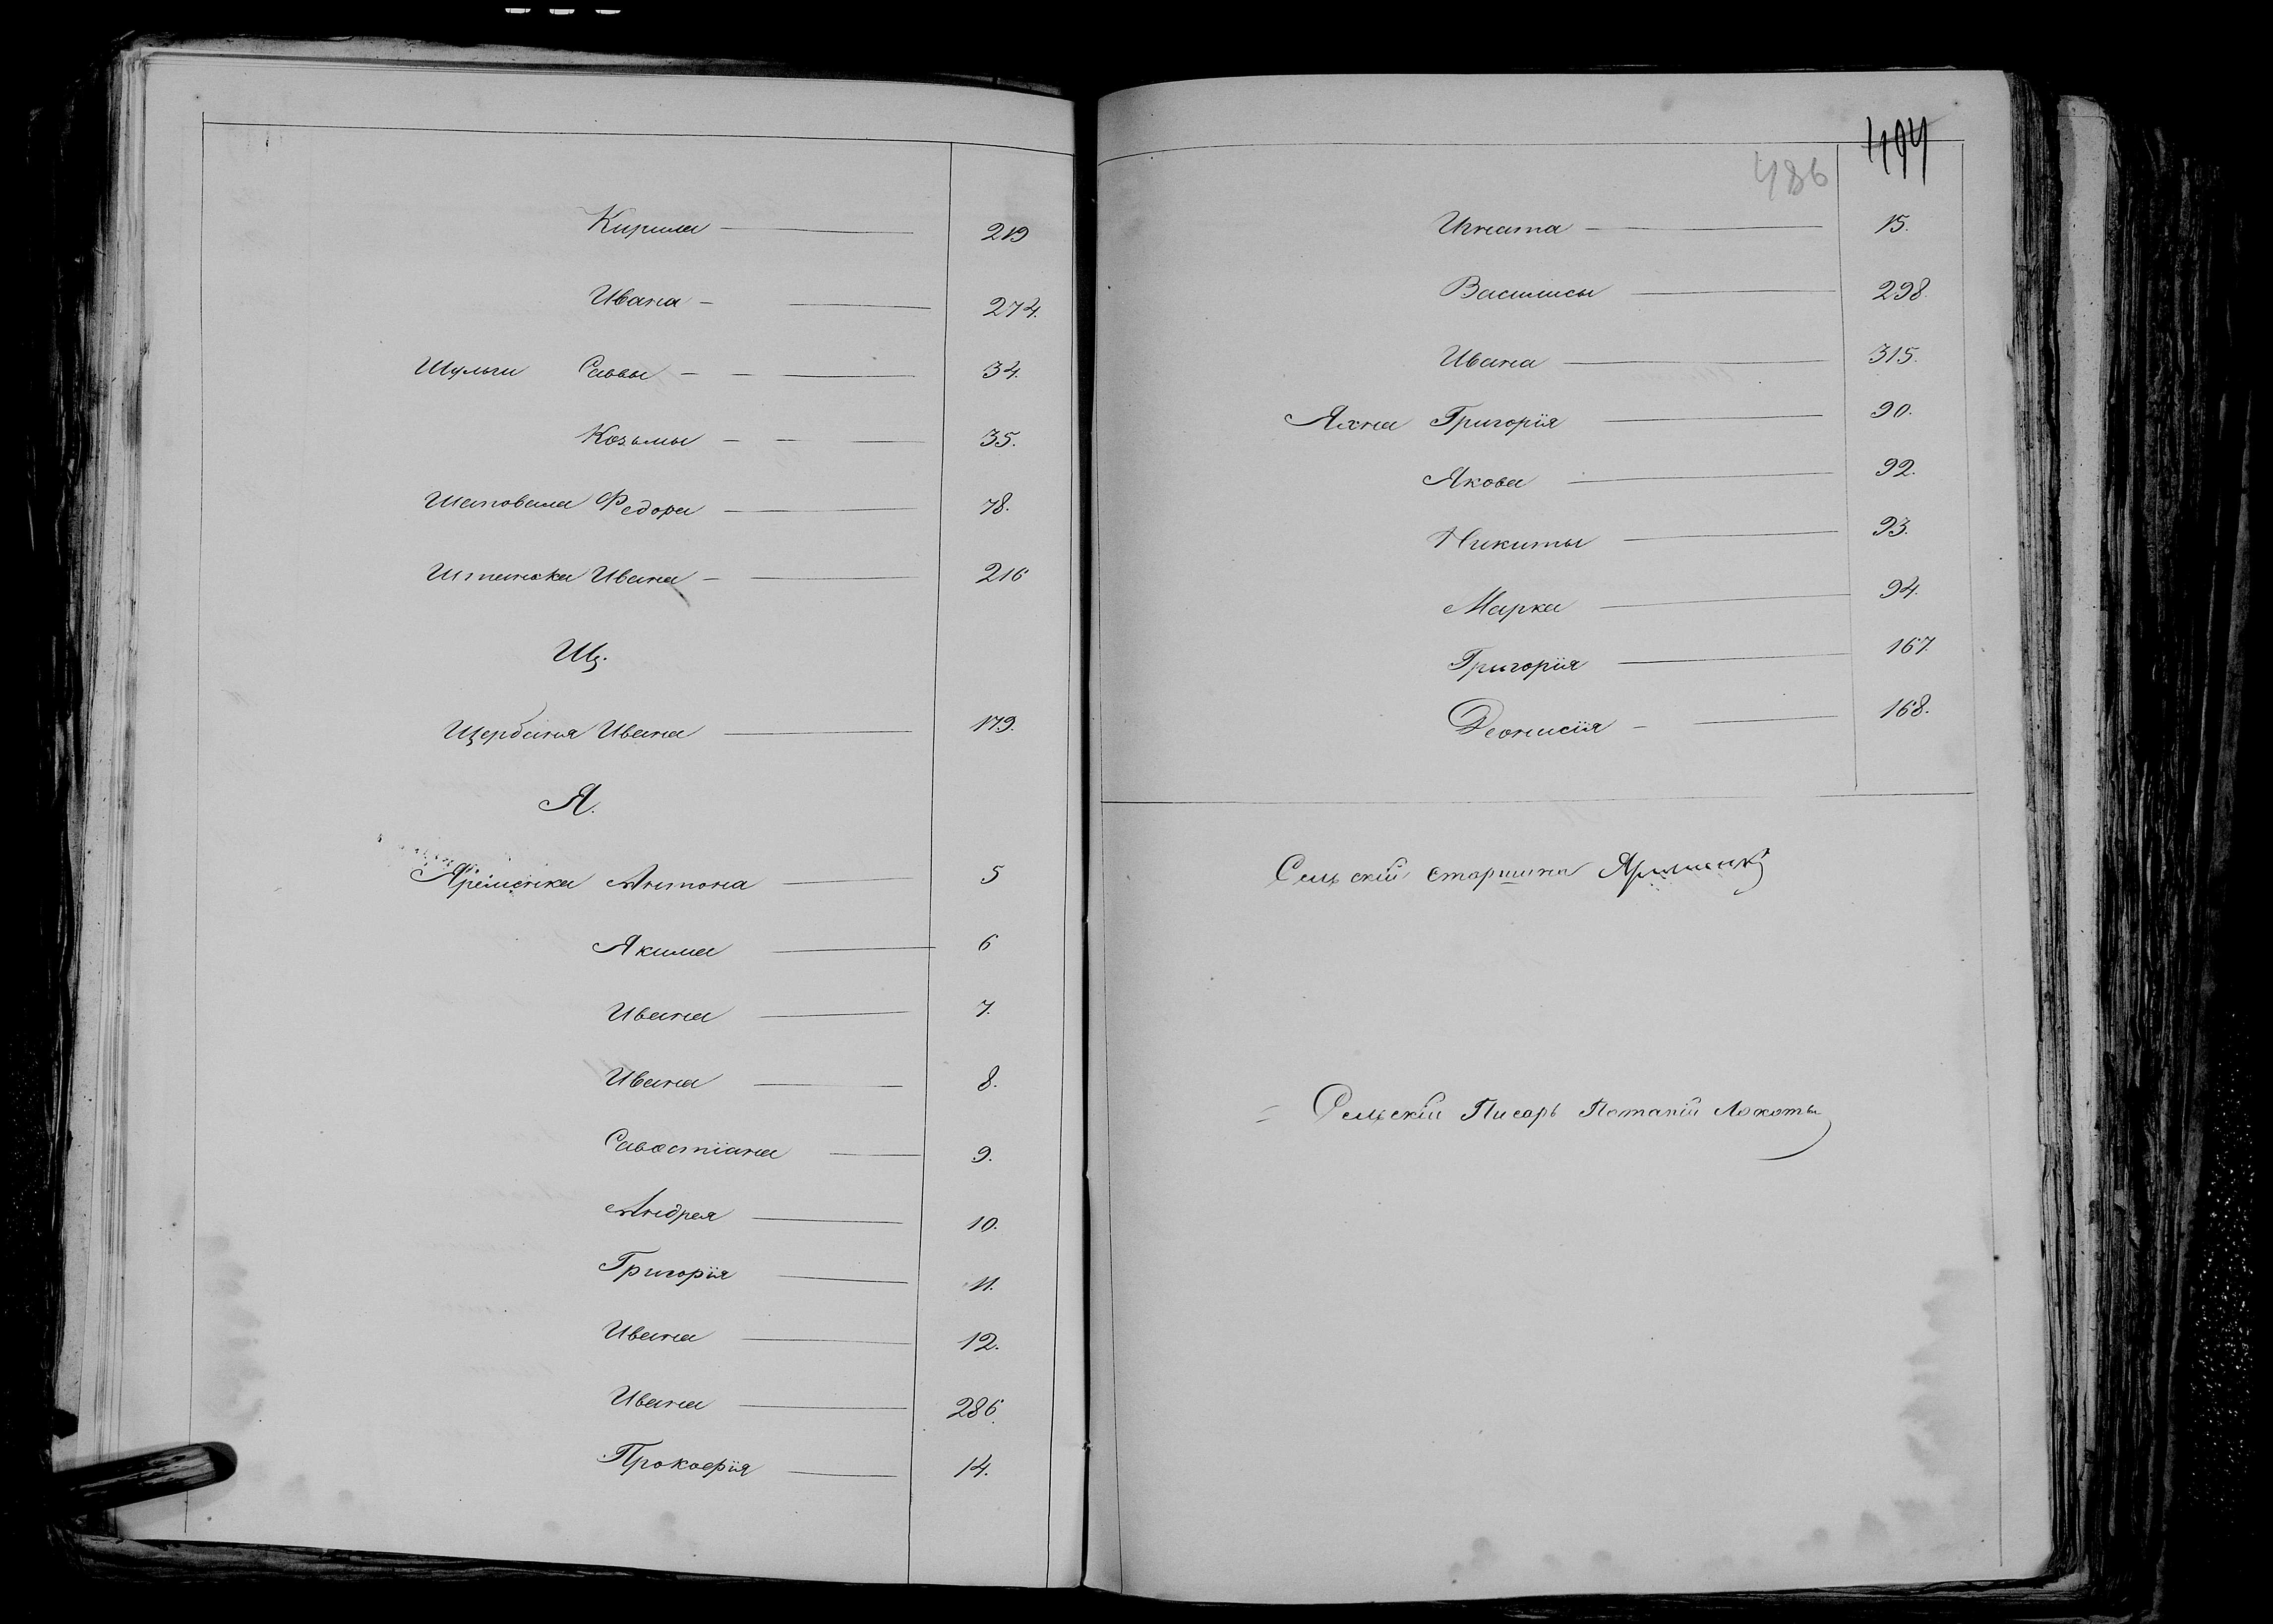 Кирила 219
Ивана 274.
Шульги Саввы 34.
Козьмы 35.
Шаповала Федора 78.
Штанька Ивана 216
Щ.
Щербаня Ивана 179.
Я.
Яременка Антона 5
Якима 6
Ивана 7.
Ивана 8.
Савостіана 9.
Андрея 10.
Григорія 11.
Ивана 12.
Ивана 286.
Прокофія 14.
494
486
Игната 15.
Василисы 298.
Ивана 315.
Яхна Григорія 90.
Якова 92.
Никиты 93.
Марка 94.
Григорія 167.
Деонисія 168.
Сельскій старшина
Сельскій Писарь Потапій Локоть